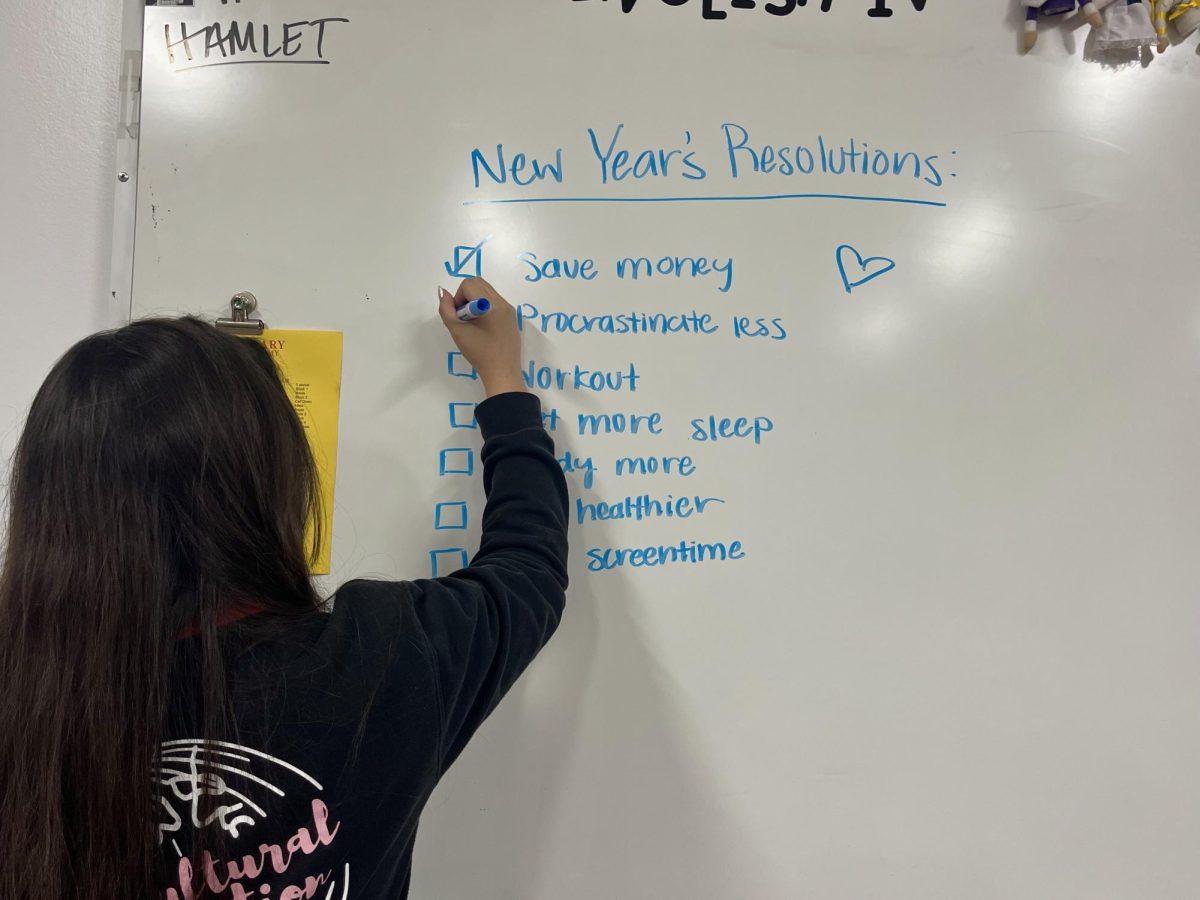 HAMLET
ENGLISH IV
New Year's Resolutions:
Save money
Procrastinate less
Workout
more sleep
more
healthier
screentime